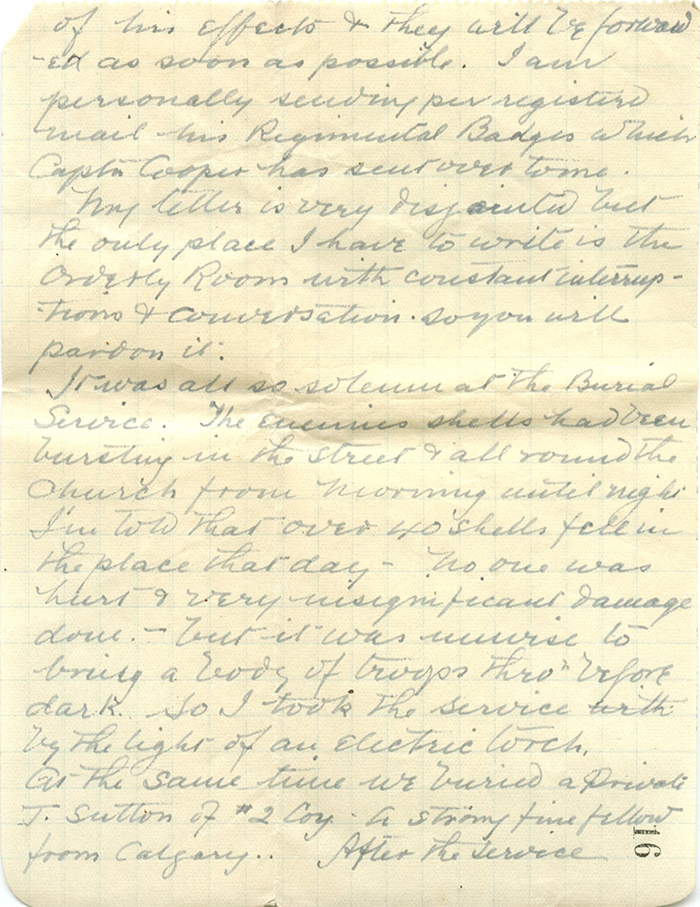 of his effects & they will be forward
-ed as soon as possible. I am
personally sending per registered
mail his Regimental Badges which
Captn Cooper has sent over to me.
My letter is very disjointed but
the only place I have to write is the
Orderly Room with constant interrup-
tions & conversation. so you will
pardon it.
It was all so solemn at the Burial
Service. The Enemies shells had been
bursting in the street & all round the
Church from Morning until night
I'm told that over 40 shells fell in
the place that day - No one was
hurt & very insignificant damage
done. - but it was unwise to
bring a body of troops thro' before
dark. So I took the service with
by the light of an Electric torch.
At the same time we buried a Private
J. Sutton of #2 Coy. A strong fine fellow
from Calgary.. After the service
9